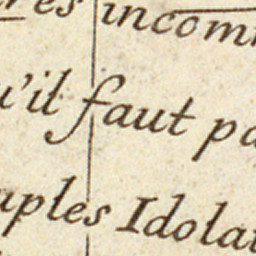 res incom
u'il faut pa
uples Idolat